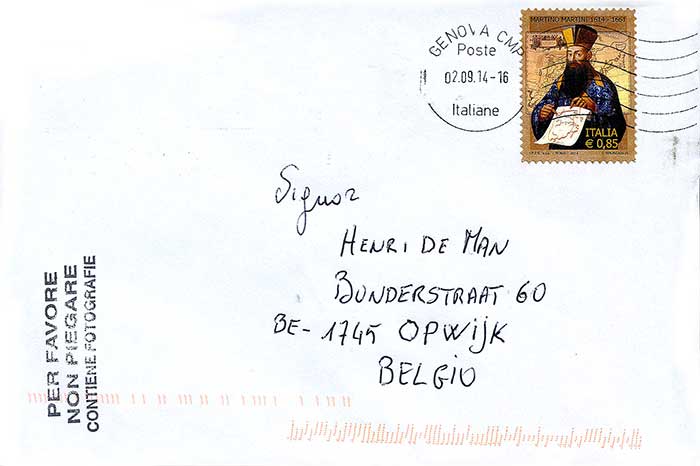 GENOVA CMP
Poste
02.09.14-16
Italiane
MARTINO MARTINI 1614 - 1661
ITALIA
€ 0,85
Signor
HENRI DE MAN
BUNDERSTRAAT 60
BE- 1745 OPWIJK
BELGIO
PER FAVORE
NON PIEGARE
CONTIENE FOTOGRAFIE